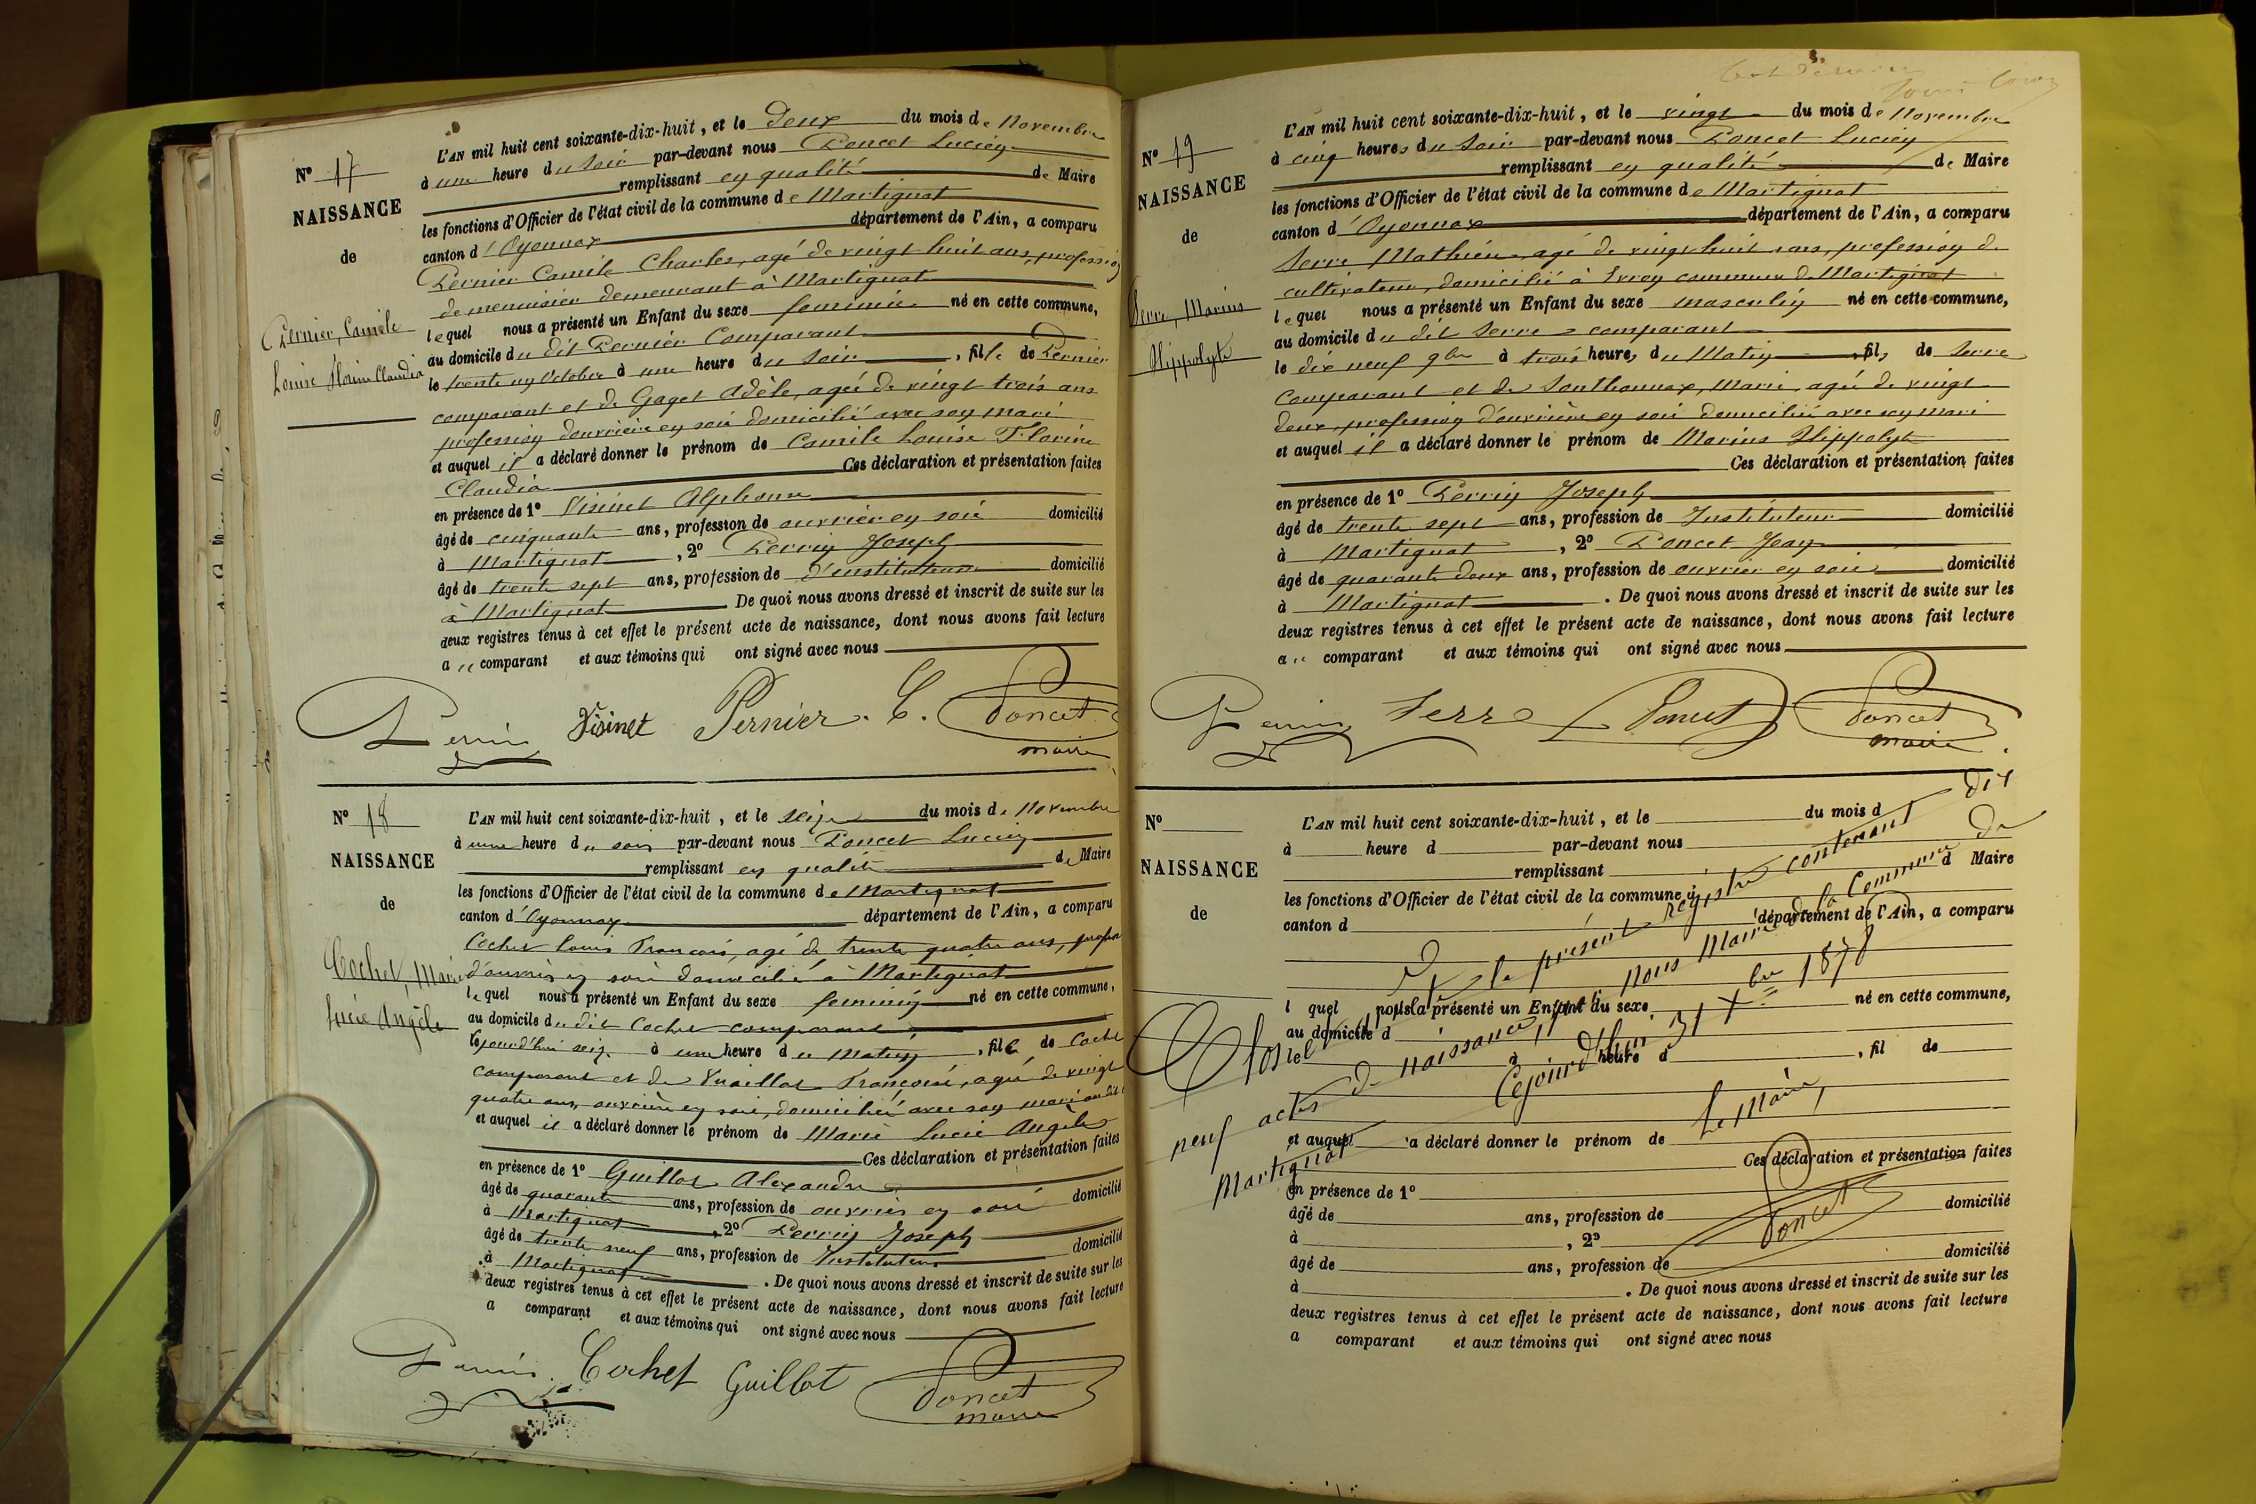 L'AN mil huit cent soixante-dix-huit, et le deux du mois de Novembre
à une heure du soir par-devant nous Poncet Lucien
remplissant en qualité de Maire
les fonctions d'Officier de l'état civil de la commune de Martignat
canton d'Oyonnax département de l'Ain, a comparu
Pernier Camile Charles, agé de vingt huit ans, profession
de menuisier demeurant à Martignat
lequel nous a présenté un Enfant du sexe feminin né en cette commune,
au domicile du dit Pernier Comparant
le trente un Octobre à une heure du soir, fille de Pernier
comparant et de Gaget Adèle, agée de vingt trois ans
profession d'ouvrière en soie domicilié avec son mari
et auquel il a déclaré donner le prénom de Camile Louise Florine
Claudia Ces déclaration et présentation faites
en présence de 1° Visinet Alphonse
âgé de cinquante ans, profession de ouvrier en soie domicilié
à Martignat, 2° Perrin Joseph
âgé de trente sept ans, profession de d'instituteur domicilié
à Martignat De quoi nous avons dressé et inscrit de suite sur les
deux registres tenus à cet effet le présent acte de naissance, dont nous avons fait lecture
a u comparant et aux témoins qui ont signé avec nous
N° 17
NAISSANCE
de
Pernier, Camile
Louise Florine Claudia
Perrin Visinet Pernier. C. Poncet
maire
N° 18
NAISSANCE
de
Cochet, Marie
Lucie Angèle
L'AN mil huit cent soixante-dix-huit, et le seize du mois de Novembre
à une heure du soir par-devant nous Poncet Lucien
remplissant en qualité de Maire
les fonctions d'Officier de l'état civil de la commune de Martignat
canton d'Oyonnax département de l'Ain, a comparu
Cochet Louis François, agé de trente quatre ans, profon
d'ouvrier en soie domicilié à Martignat
lequel nous a présenté un Enfant du sexe feminin né en cette commune,
au domicile du dit Cochet comparant
le jourd'hui seize à une heure du Matin, fille de Cochet
comparant et de Vuaillat Françoise, agée de vingt
quatre ans, ouvrière en soie, domiciliée avec son mari au dit
et auquel il a déclaré donner le prénom de Marie Lucie Angèle
Ces déclaration et présentation faites
en présence de 1° Guillot Alexandre
âgé de quarante ans, profession de ouvrier en soie domicilié
à Martignat, 2° Perrin Joseph
âgé de trente neuf ans, profession de Instituteur domicilié
à Martignat. De quoi nous avons dressé et inscrit de suite sur les
deux registres tenus à cet effet le présent acte de naissance, dont nous avons fait lecture
a comparant et aux témoins qui ont signé avec nous
Perrin Cochet Guillot Poncet
maire
N° 19
NAISSANCE
de
Serre, Marius
Hippolyte
L'AN mil huit cent soixante-dix-huit, et le vingt du mois de Novembre
à cinq heures du soir par-devant nous Poncet Lucien
remplissant en qualité de Maire
les fonctions d'Officier de l'état civil de la commune de Martignat
canton d'Oyonnax département de l'Ain, a comparu
Serre Mathieu, agé de vingt huit ans, profession de
cultivateur, domicilié à Evron commune de Martignat
lequel nous a présenté un Enfant du sexe masculin né en cette commune,
au domicile du dit Serre comparant
le dix neuf 9bre à trois heures du Matin, fils de Serre
comparant et de Southonnax, Marie, agée de vingt
deux, profession d'ouvrière en soie domiciliée avec son mari
et auquel il a déclaré donner le prénom de Marius Hippolyte
Ces déclaration et présentation faites
en présence de 1° Perrin Joseph
âgé de trente sept ans, profession de Instituteur domicilié
à Martignat, 2° Poncet Jean
âgé de quarante deux ans, profession de ouvrier en soie domicilié
à Martignat. De quoi nous avons dressé et inscrit de suite sur les
deux registres tenus à cet effet le présent acte de naissance, dont nous avons fait lecture
a u comparant et aux témoins qui ont signé avec nous
Perrin Serre Poncet Poncet
maire
N°
NAISSANCE
de
L'AN mil huit cent soixante-dix-huit, et le du mois d
à heure d par-devant nous
remplissant d Maire
les fonctions d'Officier de l'état civil de la commune d
canton d département de l'Ain, a comparu
l quel nous a présenté un Enfant du sexe né en cette commune,
au domicile d
à heure d, fil de
et auquel a déclaré donner le prénom de
Ces déclaration et présentation faites
en présence de 1°
âgé de ans, profession de domicilié
à, 2°
âgé de ans, profession de domicilié
à. De quoi nous avons dressé et inscrit de suite sur les
deux registres tenus à cet effet le présent acte de naissance, dont nous avons fait lecture
a comparant et aux témoins qui ont signé avec nous
Clos le présent registre contenant dix
neuf actes de naissance, par nous Maire de la Commune de
Martignat Cejourd'hui 31 Xbre 1878
Le Maire,
Poncet